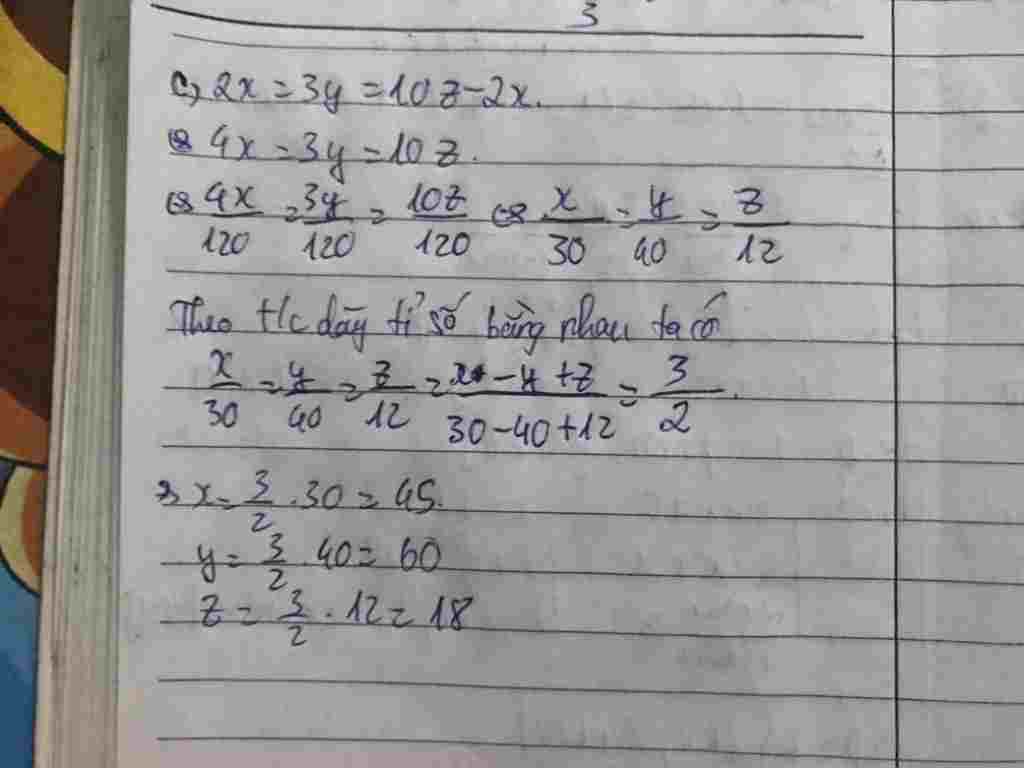 3
c, 2x = 3y = 10z - 2x.
⇔ 4x = 3y = 10z.
⇔ 4x/120 = 3y/120 = 10z/120 ⇔ x/30 = y/40 = z/12
Theo t/c dãy tỉ số bằng nhau ta có
x/30 = y/40 = z/12 = x - y + z/30 - 40 + 12 = 3/2.
⇒ x = 3/2 . 30 = 45.
y = 3/2 . 40 = 60
z = 3/2 . 12 = 18